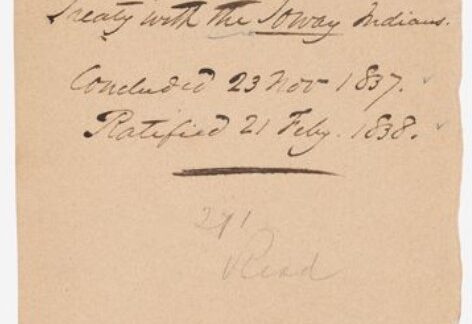 Treaty with the Ioway Indians.
Concluded 23 Nov 1837.
Ratified 21 Feby. 1838.
291
Read